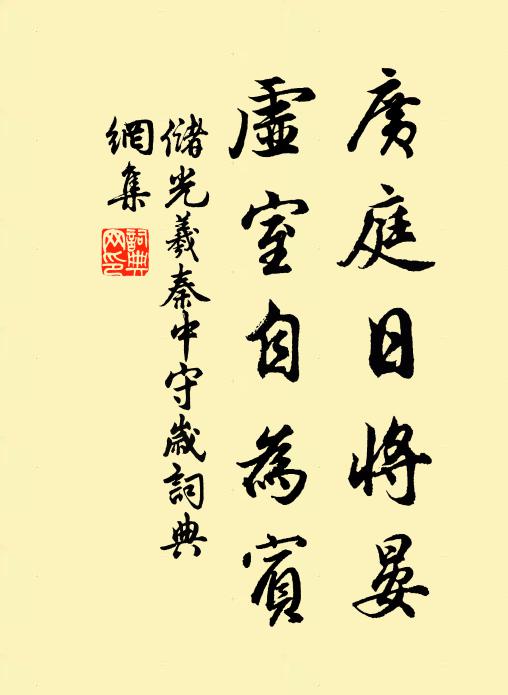 廣庭日將晏
虛室自為賓
儲光羲秦中守歲詞典
網集
詞典網印